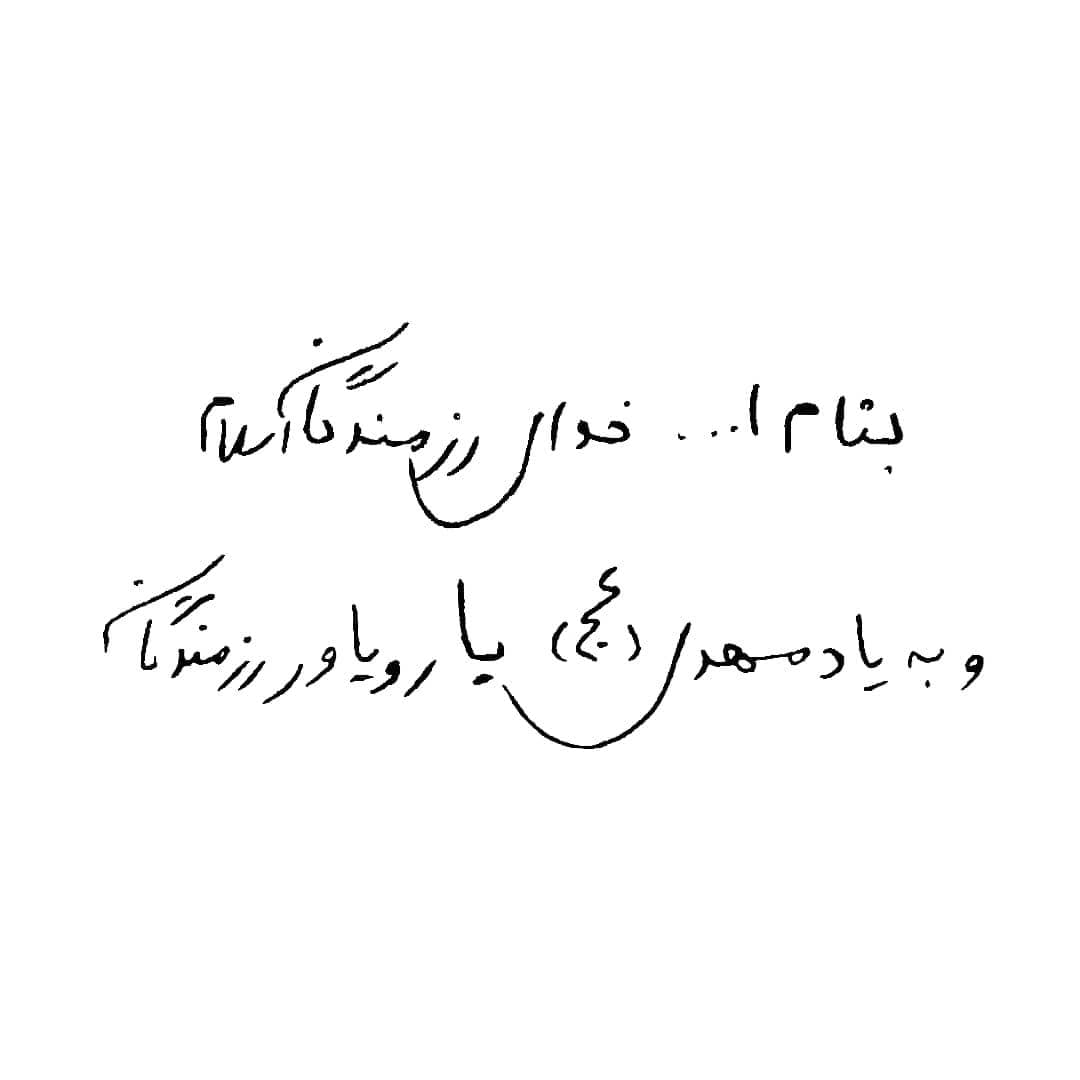 بنام ا... خدای رزمندگان اسلام
و به یاد مهدی (عج) یار و یاور رزمندگان